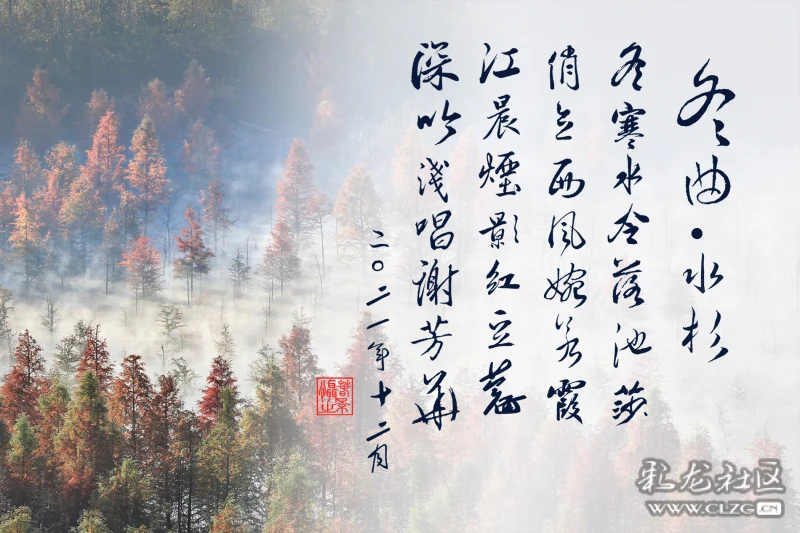 冬曲·水杉
冬寒水冷落池莎
俏立西风婉若霞
江晨煙影红豆蔻
深吟浅唱谢芳華
二〇二一年十二月
彩龙社区
WWW.CLZG.CN